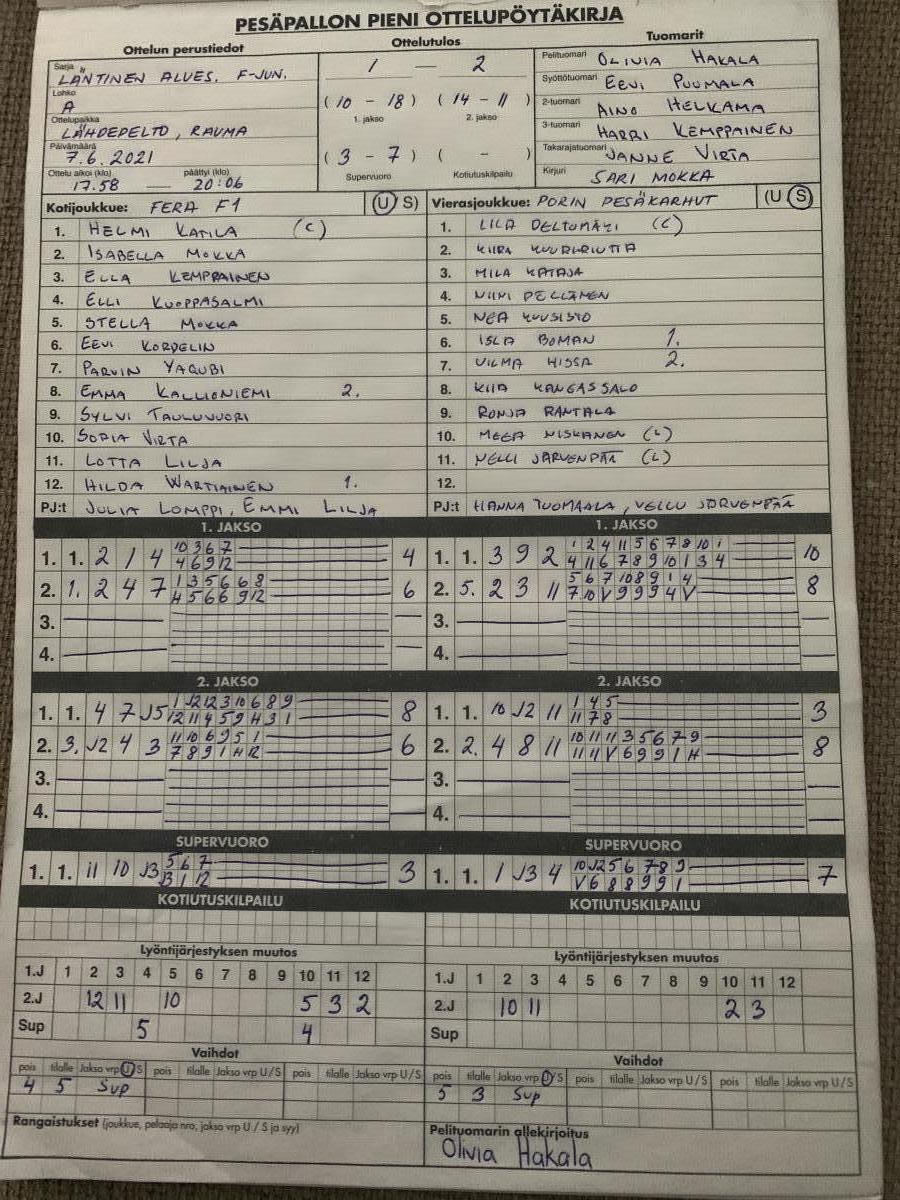 PESÄPALLON PIENI OTTELUPÖYTÄKIRJA
Ottelun perustiedot
Ottelutulos
Tuomarit
Sarja LÄNTINEN ALUES. F-JUN.
Lohko A
Ottelupaikka LÄHDEPELTO, RAUMA
Päivämäärä 7.6.2021
Ottelu alkoi (klo) päättyi (klo)
17.58 — 20:06
1 — 2
(10 - 18) (14 - 11)
1. jakso 2. jakso
(3 - 7) ( - )
Supervuoro Kotiutuskilpailu
Pelituomari OLIVIA HAKALA
Syöttötuomari EEVI PUUMALA
2-tuomari AINO HELKAMA
3-tuomari HARRI KEMPPAINEN
Takarajatuomari JANNE VIRTA
Kirjuri SARI MOKKA
Kotijoukkue: FERA F1 (U S)
1. HELMI KATILA (C)
2. ISABELLA MOKKA
3. ELLA KEMPPAINEN
4. ELLI KUOPPASALMI
5. STELLA MOKKA
6. EEVI KORDELIN
7. PARVIN YAQUBI
8. EMMA KALLIONIEMI 2.
9. SYLVI TAULUVUORI
10. SOFIA VIRTA
11. LOTTA LILJA
12. HILDA WARTIAINEN 1.
PJ:t JULIA LOMPPI, EMMI LILJA
Vierasjoukkue: PORIN PESÄKARHUT (U S)
1. LILA PELTOMÄKI (C)
2. KIIRA
3. MILA KATAJA
4. NIINI PELLÄMEN
5. NEA KUUSISTO
6. ISLA BOMAN 1.
7. VILMA HISSA 2.
8. KIIA KANGASSALO
9. RONJA RANTALA
10. MEEA NISKANEN (L)
11. NELLI JÄRVENPÄÄ (L)
12.
PJ:t HANNA TUOMAALA, VELLU JÄRVENPÄÄ
1. JAKSO
1. 1. 2 1 4 10 3 6 7 4
4 6 9 12
2. 1. 2 4 7 1 3 5 6 6 8 6
H 5 6 6 9 12
3.
4.
1. JAKSO
1. 1. 3 9 2 1 2 4 11 5 6 7 8 10 1 10
4 11 6 7 8 9 10 1 3 4
2. 5. 2 3 11 5 6 7 10 8 9 1 4 8
7 10 V 9 9 9 4 V
3.
4.
2. JAKSO
1. 1. 4 7 J5 1 J2 12 3 10 6 8 9 8
12 11 4 5 9 H 3 1
2. 3. J2 4 3 11 10 6 9 5 1 6
7 8 9 1 H 12
3.
4.
2. JAKSO
1. 1. 10 J2 11 1 4 5 3
11 7 8
2. 2. 4 8 11 10 11 11 3 5 6 7 9 8
11 11 V 6 9 9 1 H
3.
4.
SUPERVUORO
1. 1. 11 10 J3 5 6 7 3
B 1 12
SUPERVUORO
1. 1. 1 J3 4 10 J2 5 6 7 8 9 7
V 6 8 8 9 9 1
KOTIUTUSKILPAILU
KOTIUTUSKILPAILU
Lyöntijärjestyksen muutos
1.J 1 2 3 4 5 6 7 8 9 10 11 12
2.J 12 11 10 5 3 2
Sup 5 4
Lyöntijärjestyksen muutos
1.J 1 2 3 4 5 6 7 8 9 10 11 12
2.J 10 11 2 3
Sup
Vaihdot
pois tilalle Jakso vrp U/S pois tilalle Jakso vrp U/S pois tilalle Jakso vrp U/S
4 5 Sup
Vaihdot
pois tilalle Jakso vrp U/S pois tilalle Jakso vrp U/S pois tilalle Jakso vrp U/S
5 3 Sup
Rangaistukset (joukkue, pelaaja nro, jakso vrp U / S ja syy)
Pelituomarin allekirjoitus
Olivia Hakala